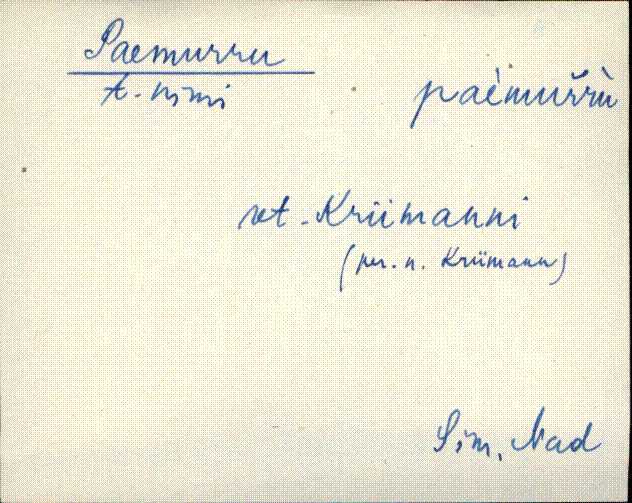 Paemurru
t. nimi
paèmuřrù
vt. Kriimanni
(per. n. Kriimann)
Sim, Nad